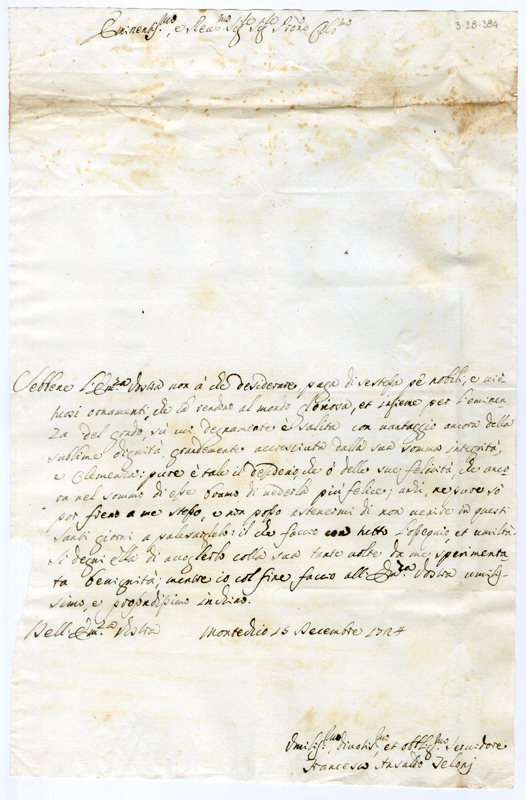 3-28-384
Eminentiss.mo, e Reu.mo Sig.re Sig.re Pron.e Col.mo
Sebbene l'Em.za Vostra non à che desiderare paga di se stessa pe nobili, e uir
tuosi ornamenti, che la rendno al mondo gloriosa, et insieme per l'eminen
za del grado, sù cui degnamente è salita con uantaggio ancora della
sublime dignità grandemente accresciuta dalla sua somma integrità,
e Clemenza: pure è tale il desiderio che ò delle sue felicità che anco
ra nel sommo di esse bramo di uederla più felice; anzi, ne pure sò
por freno a me stesso, e non posso astenermi di non uenire in questi
Santi giorni a palesarlelo: il che faccio con tutto l'ossequio et umiltà.
Si degni ella di accoglierlo colla sua tante uolte da me sperimenta
ta benignità; mentre io col fine faccio all'Em.za Vostra umilis-
simo, e profondissimo inchino.
Dell'Em.za Vostra Montedico 15 Decembre 1724
Vmiliss.mo Diuotis.mo et obblig.mo Seruidore
Francesco Ansaldo Telonj